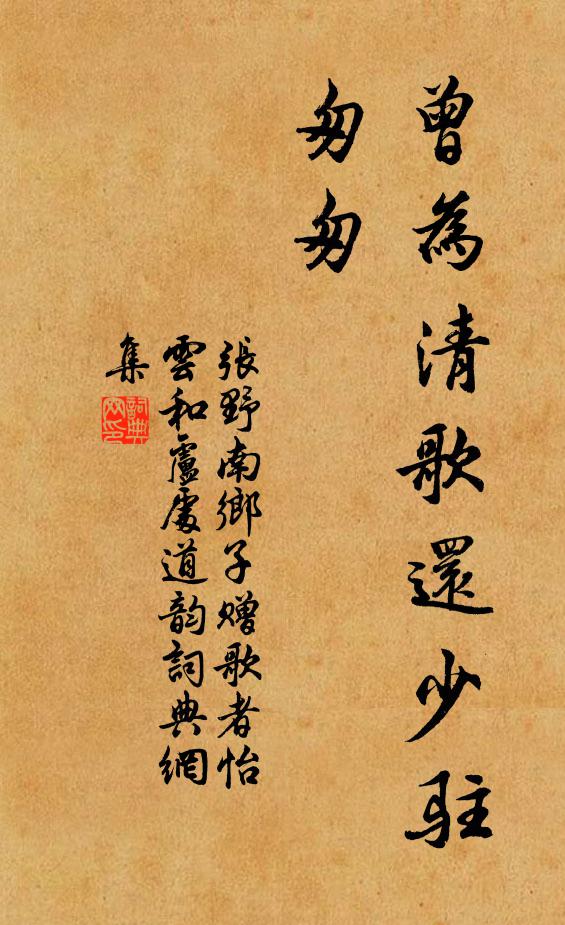 曾為清歌還少駐
匆匆
張野南鄉子贈歌者怡
雲和盧處道韵詞典網
集
詞典網印